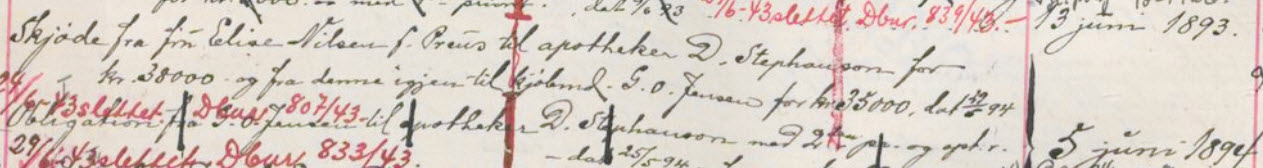 dat 9/6 93 5/6-43 slettet. Dbur. 839/43.-
Skjøde fra frû Elise Nilsen f. Preus til apotheker D. Stephanson for 13 juni 1893.
kr. 38000 og fra denne igjen til kjøbmd. G. O. Jensen for kr. 35000, dat 94
43 slettet Dbur 807/43-
Obligation fra G. O. Jensen til apotheker D. Stephanson med 2den pr. og opt. r. 5 juni 1894
29/6-43 slettet Dbur. 833/43. - dat 25/5-94